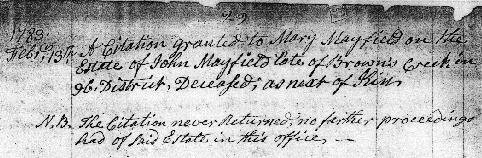 22
1783
Feb.ry 13th A Citation granted to Mary Mayfield on the
Estate of John Mayfield late of Brown's Creek in
96. District, Deceased, as next of Kin.
N.B. The Citation never Returned; no farther proceedings
had of said Estate in this office, —